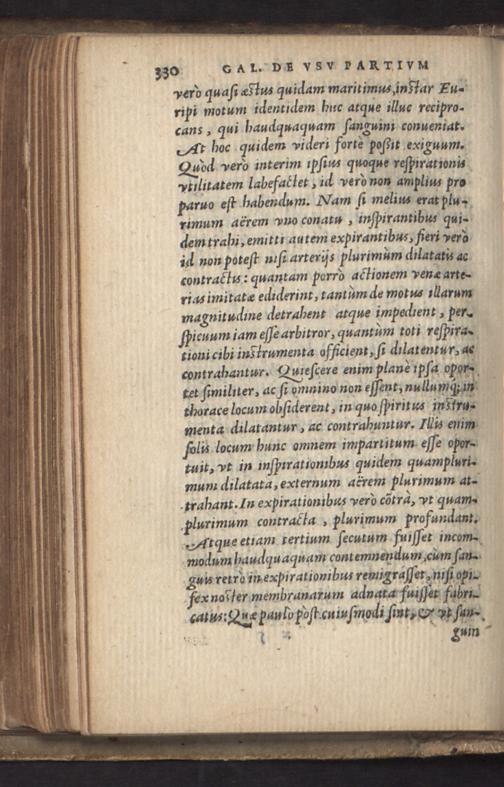 330 GAL. DE VSV PARTIVM
verò quasi æstus quidam maritimus, instar Eu-
ripi motum identidem huc atque illuc recipro-
cans, qui haudquaquam sanguini conueniat.
At hoc quidem videri forte poßit exiguum.
Quòd verò interim ipsius quoque respirationis
vtilitatem labefactet, id verò non amplius pro
paruo est habendum. Nam si melius erat plu-
rimum aërem vno conatu, inspirantibus qui-
dem trahi, emitti autem expirantibus, fieri verò
id non potest nisi arterijs plurimùm dilatatis ac
contractis: quantam porrò actionem venæ arte-
rias imitatæ ediderint, tantùm de motus illarum
magnitudine detrahent atque impedient, per-
spicuum iam esse arbitror, quantùm toti respira-
tioni cibi instrumenta officient, si dilatentur, ac
contrahantur. Quiescere enim planè ipsa opor-
tet similiter, ac si omnino non essent, nullumq; in
thorace locum obsiderent, in quo spiritus instru-
menta dilatantur, ac contrahuntur. Illis enim
solis locum hunc omnem impartitum esse opor-
tuit, vt in inspirationibus quidem quampluri-
mum dilatata, externum aërem plurimum at-
trahant. In expirationibus verò cõtrà, vt quam-
plurimum contracta, plurimum profundant.
Atque etiam tertium secutum fuisset incom-
modum haudquaquam contemnendum, cùm san-
guis retrò in expirationibus remigrasset, nisi opi-
fex noster membranarum adnata fuisset fabri-
catus: Quæ paulo pòst cuiusmodi sint, & vt san-
guin